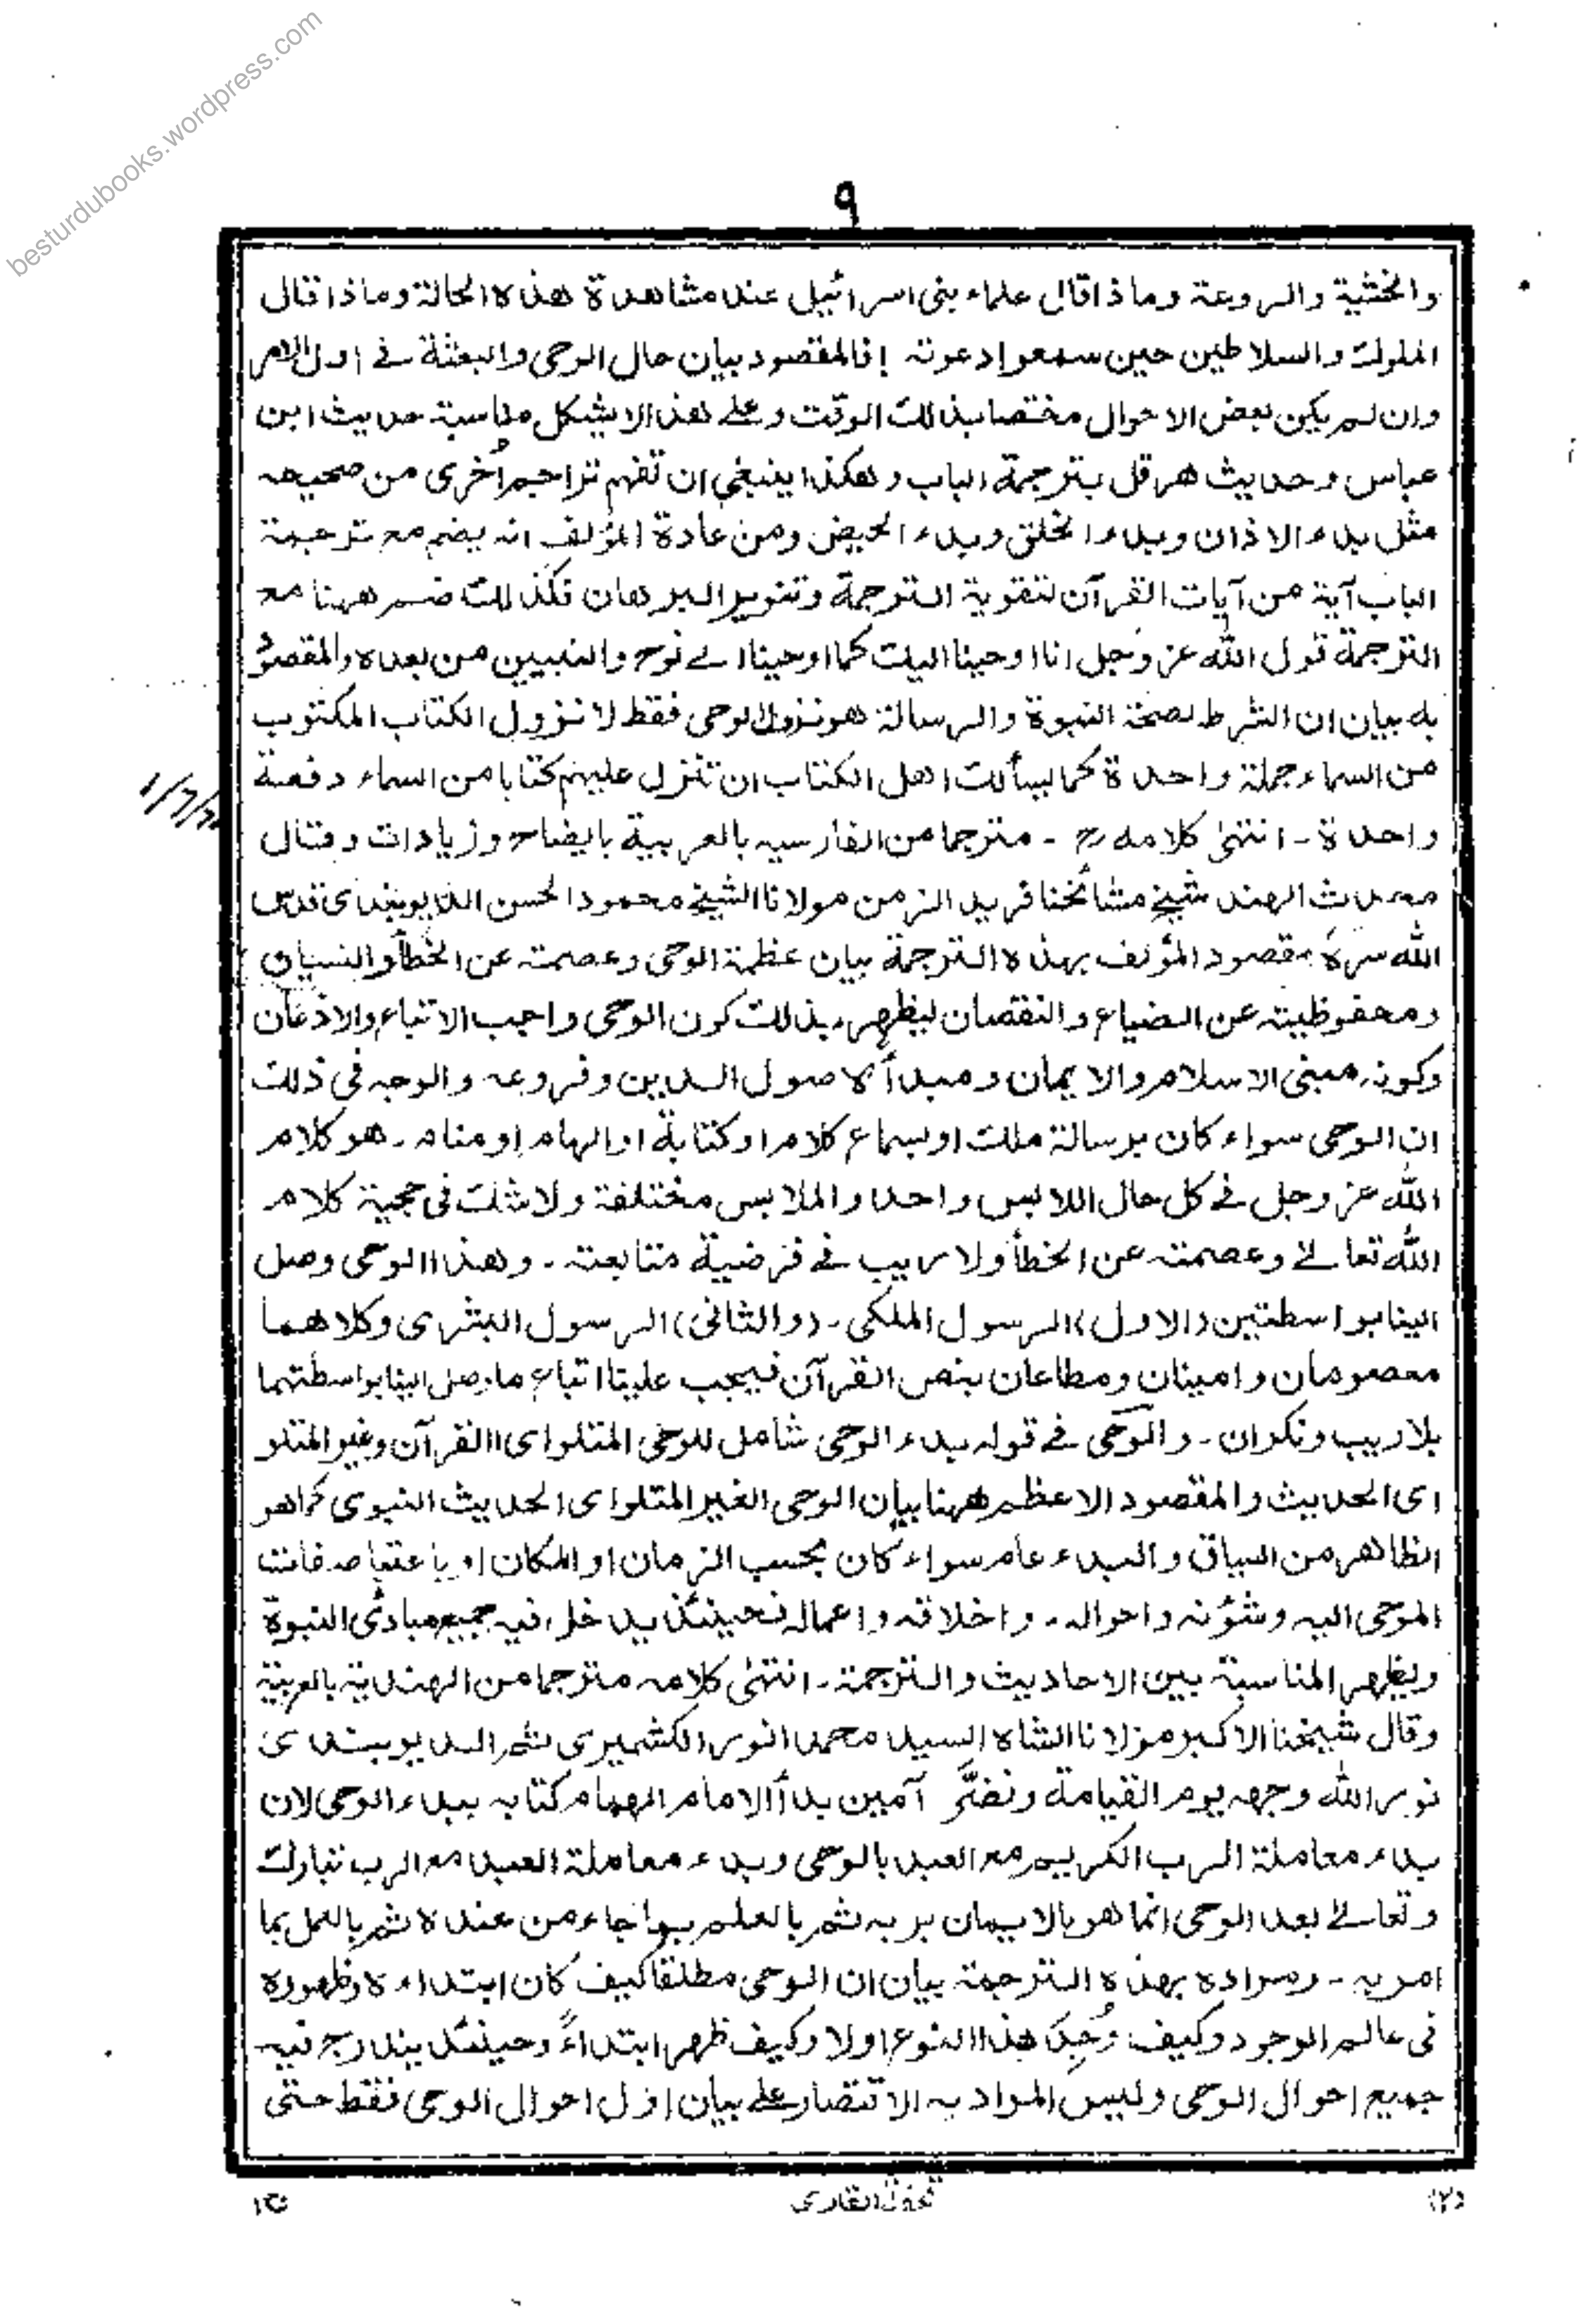 besturdubooks.wordpress.com
٩
والخشية والروعة وماذا قال علماء بنى اسرائيل عند مشاهدة هذه الحالة وماذا قال
الملوك والسلاطين حين سمعوا دعوته إذ المقصود بيان حال الوحى والبعثة فى اول الامر
وان لم يكن بعض الاحوال مختصا بذلك الوقت وعلى هذا لا يشكل مناسبة حديث ابن
عباس وحديث هرقل بترجمة الباب وهكذا ينبغى ان تفهم تراجم أخرى من صحيحه
مثل بدء الاذان وبدء الخلق وبدء الحيض ومن عادة المؤلف انه يضم مع ترجمة
الباب آية من آيات القرآن لتقوية الترجمة وتنوير البرهان فكذلك ضم ههنا مع
الترجمة قول الله عز وجل انا اوحينا اليك كما اوحينا الى نوح والنبيين من بعده والمقصود
به بيان ان الشرط لصحة النبوة والرسالة هو نزول الوحى فقط لا نزول الكتاب المكتوب
من السماء جملة واحدة كما يسألك اهل الكتاب ان تنزل عليهم كتابا من السماء دفعة
واحدة ـ انتهى كلامه رح ـ مترجما من الفارسيه بالعربية بايضاح وزيادات وقال
محدث الهند شيخ مشائخنا فريد الزمن مولانا الشيخ محمود الحسن الديوبندى قدس
الله سره مقصود المؤلف بهذه الترجمة بيان عظمة الوحى وعصمته عن الخطأ والنسيان
ومحفوظيته عن الضياع والنقصان ليظهر بذلك كون الوحى واجب الاتباع والاذعان
وكونه مبنى الاسلام والايمان ومبدأ لاصول الدين وفروعه والوجه فى ذلك
ان الوحى سواء كان برسالة ملك او بسماع كلام او كتابة او الهام او منام ـ هو كلام
الله عز وجل فى كل حال اللابس واحد والملابس مختلفة ولا شك فى حجية كلام
الله تعالى وعصمته عن الخطأ ولا ريب فى فرضية متابعته ـ وهذا الوحى وصل
الينا بواسطتين (الاول) الرسول الملكى ـ (والثانى) الرسول البشرى وكلاهما
معصومان وامينان ومطاعان بنص القرآن فيجب علينا اتباع ما وصل الينا بواسطتهما
بلا ريب ونكران ـ والوحى فى قوله بدء الوحى شامل للوحى المتلو اى القرآن وغير المتلو
اى الحديث والمقصود الاعظم ههنا بيان الوحى الغير المتلو اى الحديث النبوى كما هو
الظاهر من السياق والبدء عام سواء كان بحسب الزمان او المكان او باعتبار صفات
الموحى اليه وشؤنه واحواله ـ واخلاقه واعماله فحينئذ يدخل فيه جميع مبادئ النبوة
ويظهر المناسبة بين الاحاديث والترجمة ـ انتهى كلامه مترجما من الهندية بالعربية
وقال شيخنا الاكبر مولانا الشاه السيد محمد انور الكشميرى ثم الديوبندى
نور الله وجهه يوم القيامة ونضَّر آمين بدأ الامام الهمام كتابه ببدء الوحى لان
بدء معاملة الرب الكريم مع العبد بالوحى وبدء معاملة العبد مع الرب تبارك
وتعالى بعد الوحى انما هو بالايمان بربه ثم بالعلم بما جاء من عنده ثم بالعمل بما
امر به ـ ومراده بهذه الترجمة بيان ان الوحى مطلقا كيف كان ابتداءه وظهوره
فى عالم الوجود وكيف وُجِدَ هذا النوع اولا وكيف ظهر ابتداءً وحينئذ يندرج فيه
جميع احوال الوحى وليس المراد به الاقتصار على بيان اول احوال الوحى فقط حتى
(٢)
تحفة القارى
ج١